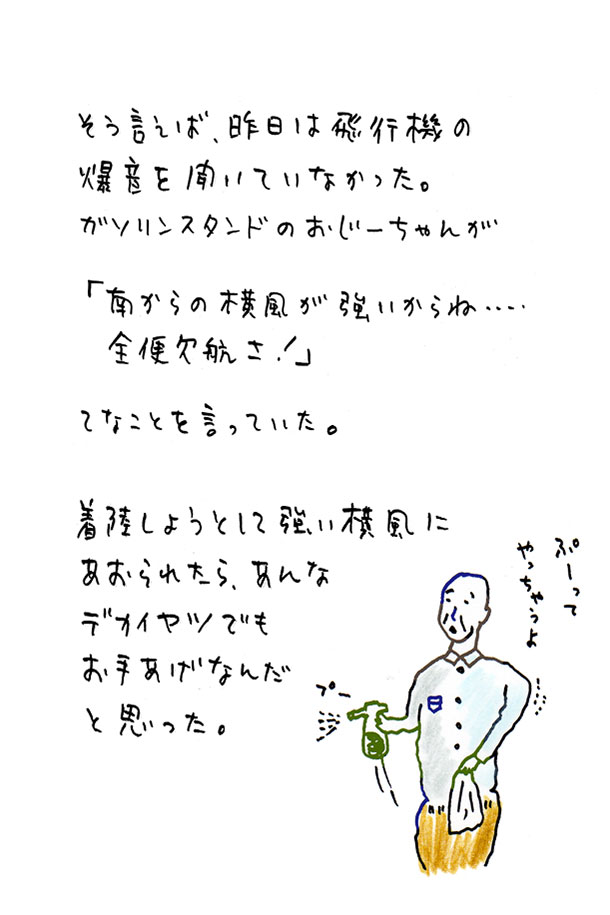 そう言えば、昨日は飛行機の
爆音を聞いていなかった。
ガソリンスタンドのおじーちゃんが
「南からの横風が強いからね‥‥
全便欠航さ！」
てなことを言っていた。
着陸しようとして強い横風に
あおられたら、あんな
デカイヤツでも
お手あげなんだ
と思った。
ぷーって
やっちゃうよ
プー